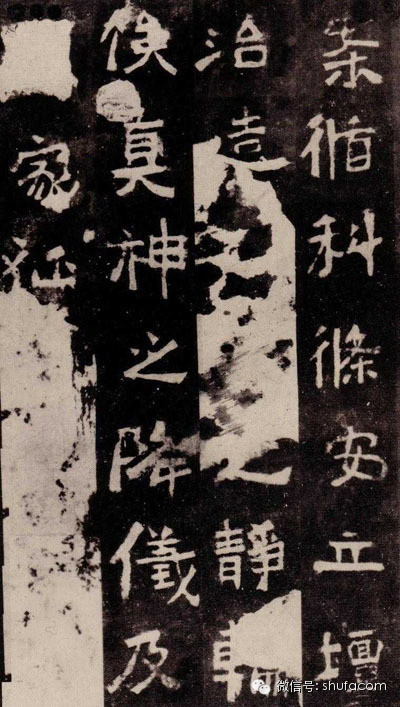 案循科條安立壇
治造之靜輪
俟真神之降儀及
家征
微信号: shufacom